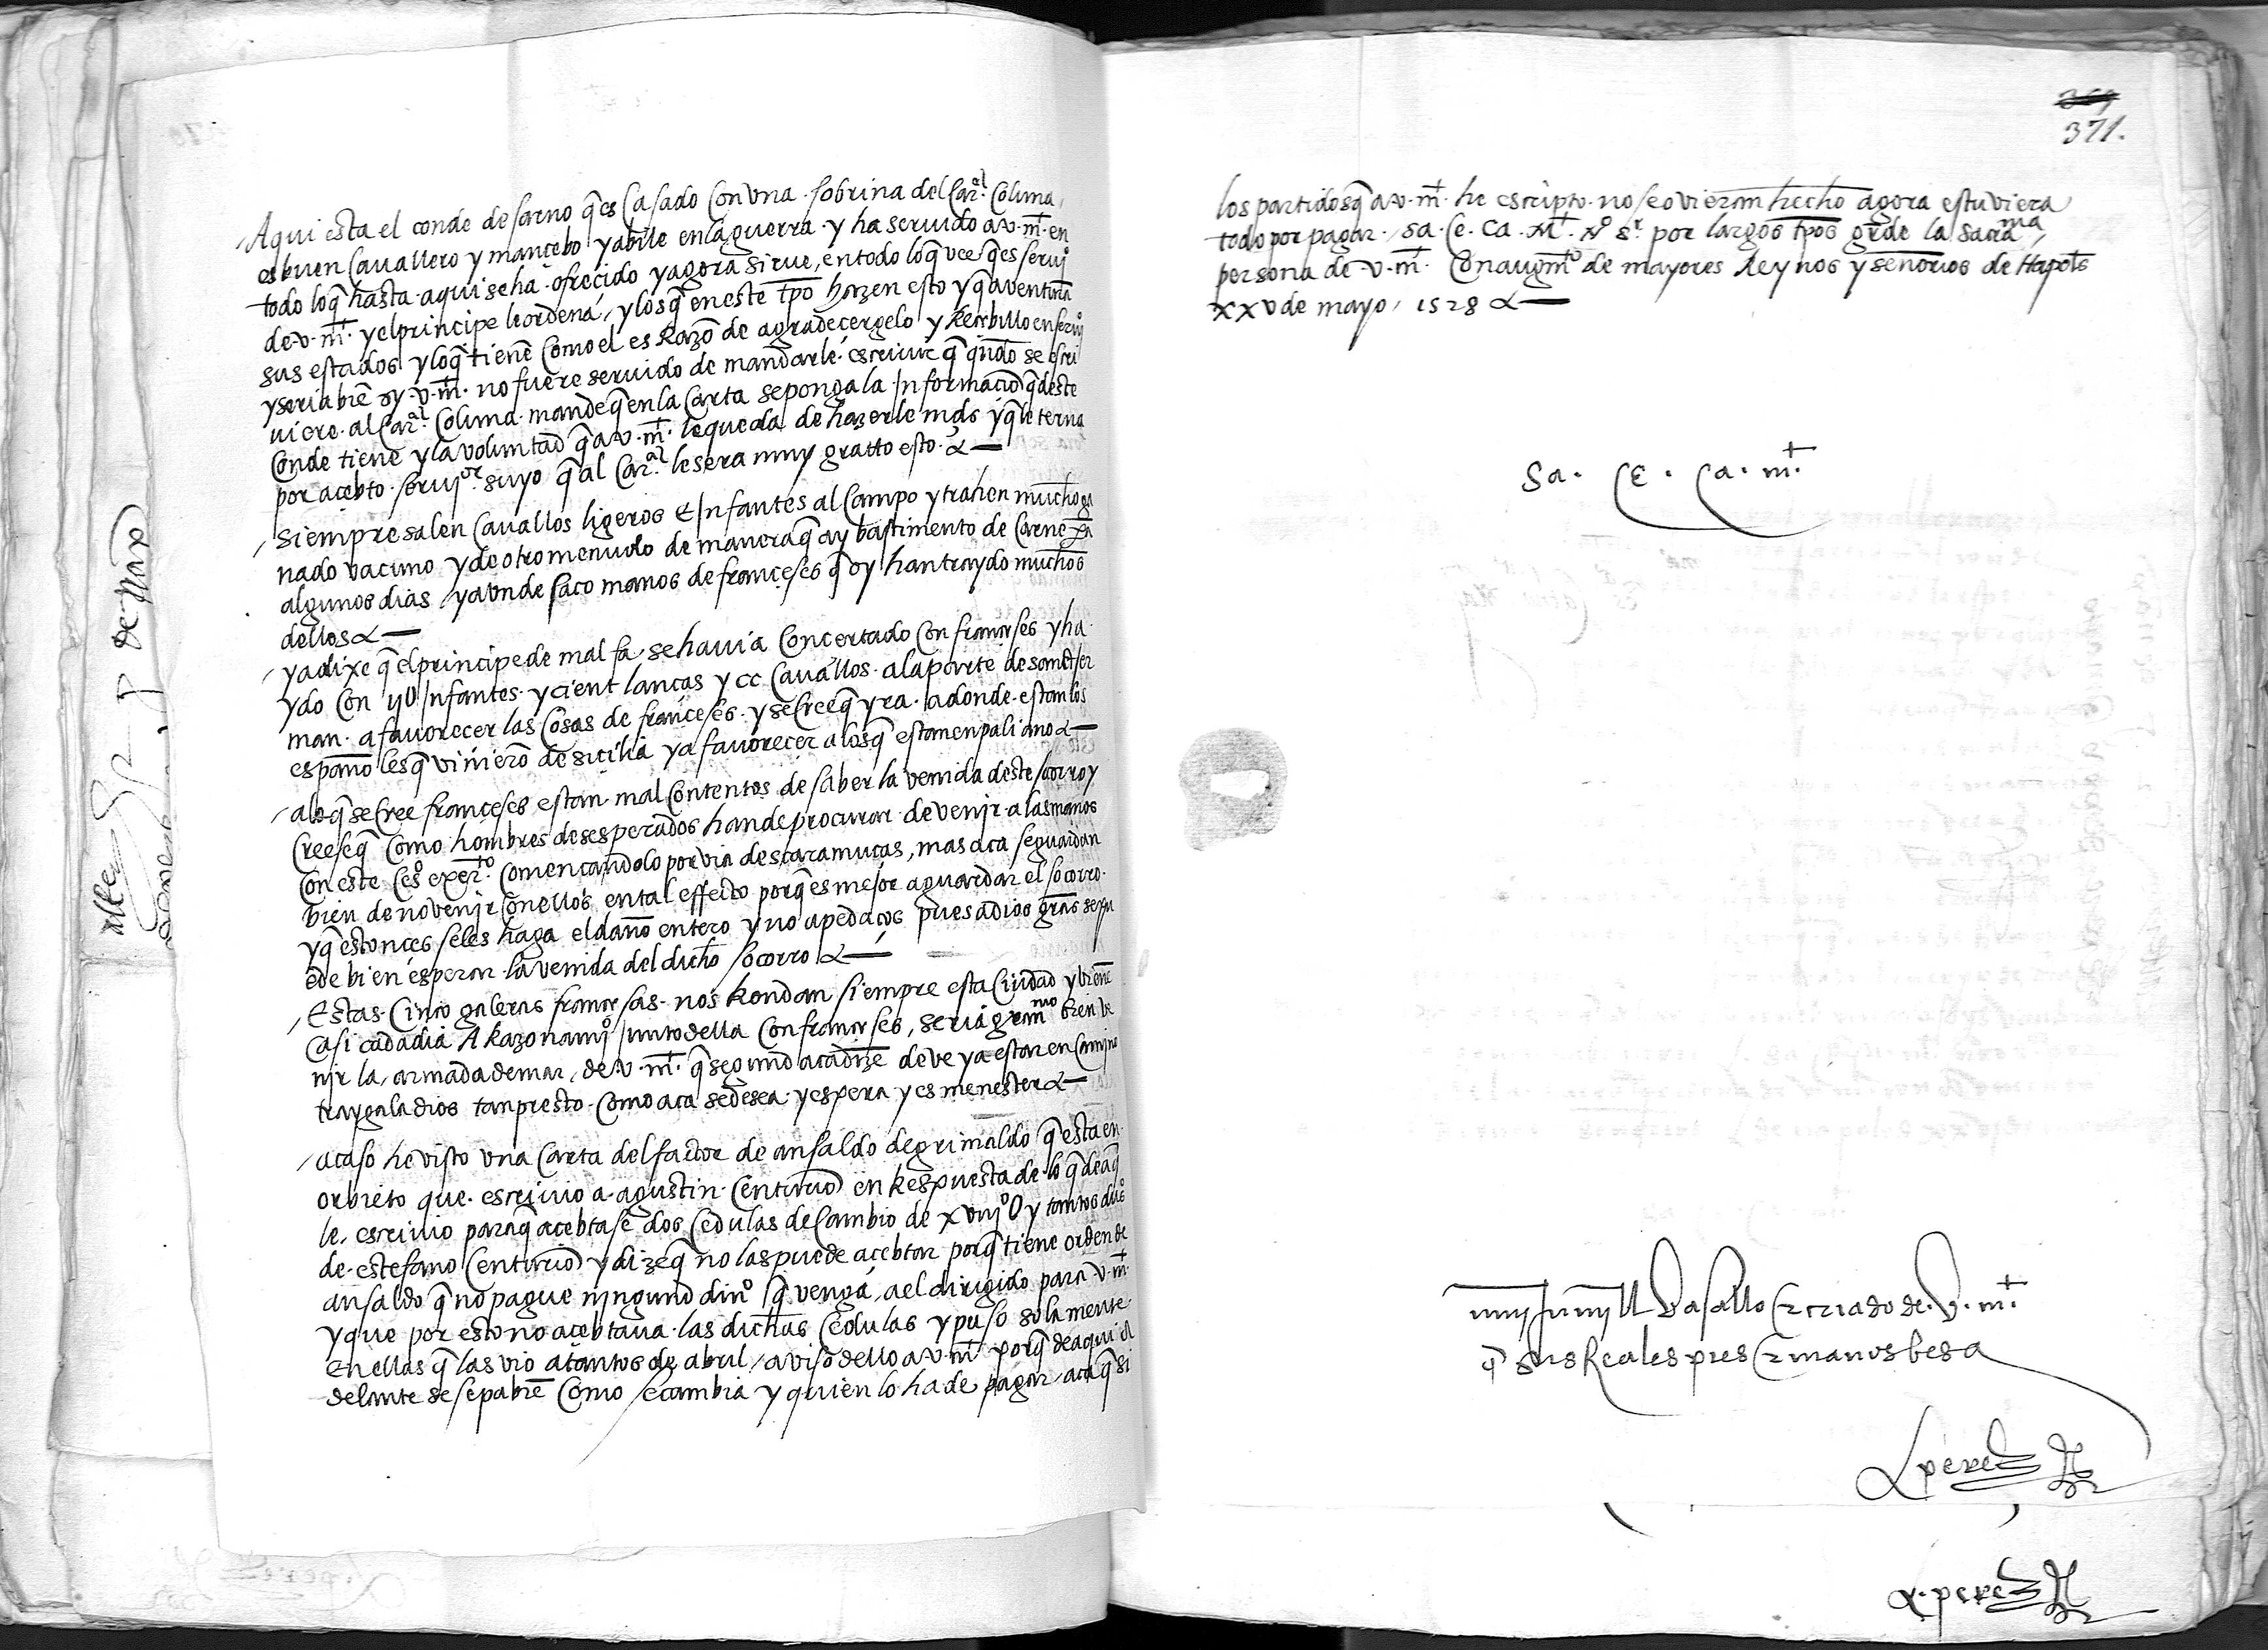 Aqui esta el conde de sarno q̃ es Casado Con vna sobrina del Car.al Coluna,
es buen Cavallero y mançebo y abile en la guerra y ha seruido a v. m.t en
todo loq̃ hasta aqui se ha ofrecido y agora sirue, en todo lo q̃ vee q̃ es serui.o
de v. m.t y el principe le ordena, y los q̃ en este tp̃o hazen esto y q̃ aventura
sus estados y lo q̃ tienẽ Como el es Razõ de agradeçergelo y Recibillo en serui.o
y seria biẽ sy v. m.t no fuere seruido de mandarle escriuir q̃ quãdo se escri
uiere al Car.al Coluna mande q̃ en la Carta se ponga la Informaciõ q̃ deste
Conde tiene y la voluntad q̃ a v. m.t le queda de hazerle mds y q̃ le terna
por acebto seruj.or suyo q̃ al Car.al le sera muy gratto esto.
Siempre salen Cauallos ligeros e Infantes al Campo y trahen mucho ga
nado vacuno y de otro menudo de manera q̃ ay bastimento de Carne pa
algunos dias y avn de saco manos de françeses q̃ oy han traydo muchos
dellos
ya dixe q̃ el principe de malfa se hauia Concertado Con franceses y ha
ydo Con ijU Infantes y cient lanças y cc Cauallos a la parte de sanct ser
man a favorecer las Cosas de françeses y se cree q̃ yra adonde estan los
españoles q̃ vinierõ de sicilia y a favorecer a los q̃ estan en paliano
a lo q̃ se Cree françeses estan mal Contentos de saber la venida deste socorro y
Creese q̃ Como hombres desesperados han de procurar de venir a las manos
Con este Ces.o exer.to Començandolo por via descaramuças, mas aca se guardan
bien de no venir Con ellos en tal effecto porq̃ es mejor aguardar el socorro
y q̃ estonces se les haga el daño entero y no a pedaços pues a dios gras se pu
ede bien esperar la venida del dicho socorro
Estas Cinco galeras françesas nos Rondan siempre esta Ciudad y vienẽ
Casi cada dia A Razonami.o Junto della Con franceses, seria gran.mo bien ve
nir la armada de mar, de v. m.t q̃ segund aca dizẽ deve ya estar en Camino
traygala dios tan presto Como aca se desea y espera y es menester
acaso he visto vna Carta del factor de ansaldo de grimaldo q̃ esta en
orbieto que escriuio a agustin Centurion en Respuesta de lo q̃ de aq̃
le escriuio paraq̃ acebtase dos Cedulas de Cambio de xviijo U y tantos du.os
de estefano Centurion y dize q̃ no las puede acebtar porq̃ tiene orden de
ansaldo q̃ no pague ningund din.o q̃ venga a el dirigido para v. m.t
y que por esto no acebtaua las dichas Cedulas y puso solamente
en ellas q̃ las vio a tantos de abril, aviso dello a v. m.t porq̃ de aqui a
delante se sepa biẽ Como se cambia y quien lo ha de pagar aca q̃ si
371.
los partidos q̃ a v. m.t he escripto no se ovieran hecho agora estuviera
todo por pagar. Sa. Ce. Ca. M.t N.o S.r por largos tp̃os gr̃de la sacra.ma
persona de v. m.t Con augm.to de mayores Reynos y señorios de Napo.ls
xxv de mayo, 1528
Sa. Ce. Ca. m.t
muy humill vasallo e criado de v. m.t
q̃ sus Reales pies e manos besa
L perez
L. perez